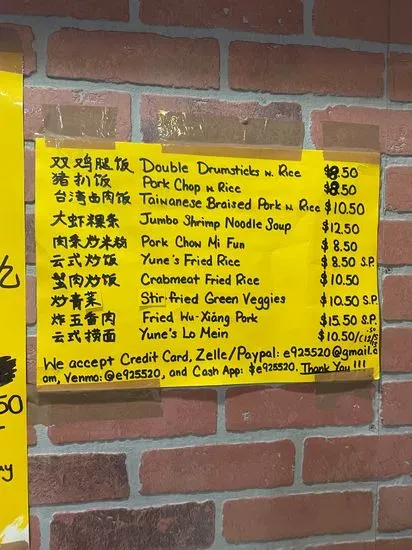 双鸡腿饭 Double Drumsticks w. Rice $8.50
猪扒饭 Pork Chop w Rice $8.50
台湾卤肉饭 Taiwanese Braised Pork w. Rice $10.50
大虾粿条 Jumbo Shrimp Noodle Soup $12.50
肉条炒米粉 Pork Chow Mi Fun $8.50
云式炒饭 Yune's Fried Rice $8.50 S.P.
蟹肉炒饭 Crabmeat Fried Rice $10.50
炒青菜 Stir fried Green Veggies $10.50 S.P.
炸五香肉 Fried Wu-Xiang Pork $15.50 S.P.
云式捞面 Yune's Lo Mein $10.50
We accept Credit Card, Zelle/Paypal: e925520@gmail.c
om, Venmo: @e925520, and Cash App: $e925520. Thank You!!!
50